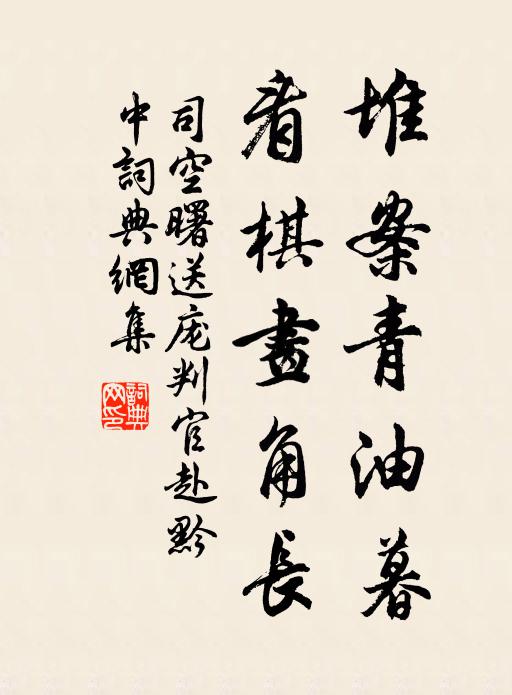 堆案青油暮
看棋畫角長
司空曙送庞判官赴黔
中詞典網集
詞典網印